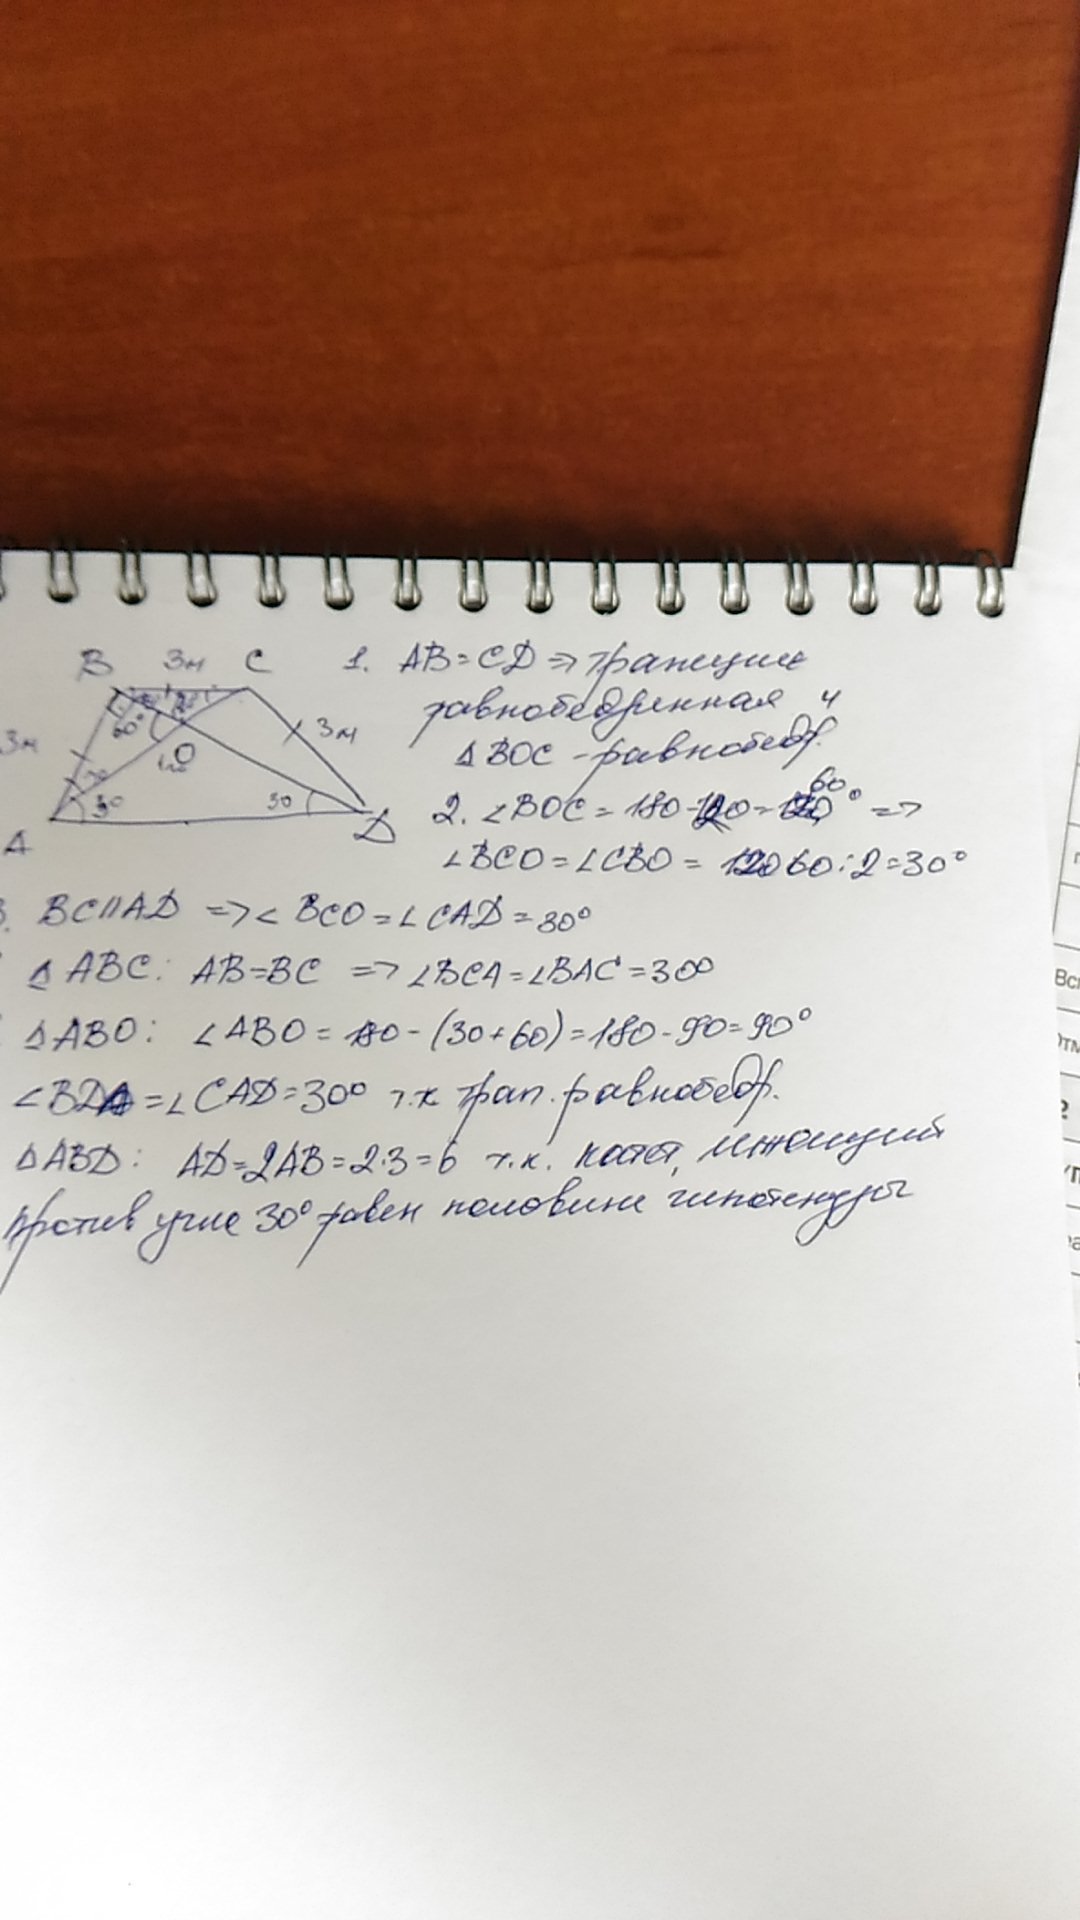 B 3м C
3м
3м
60°
O
30
30
A
D
1. AB=CD => трапеция
равнобедренная и
△ BOC - равнобедр.
2. ∠BOC = 180-120 = 60° =>
∠BCO = ∠CBO = 60:2=30°
3. BC//AD => ∠ BCO = ∠CAD = 30°
△ ABC: AB=BC => ∠BCA = ∠BAC = 30°
△ABO: ∠ABO = 180 - (30+60) = 180 - 90 = 90°
∠BDA = ∠CAD = 30° т.к трап. равнобедр.
△ABD: AD=2AB=2·3=6 т.к. катет, лежащий
против угла 30° равен половине гипотенузы